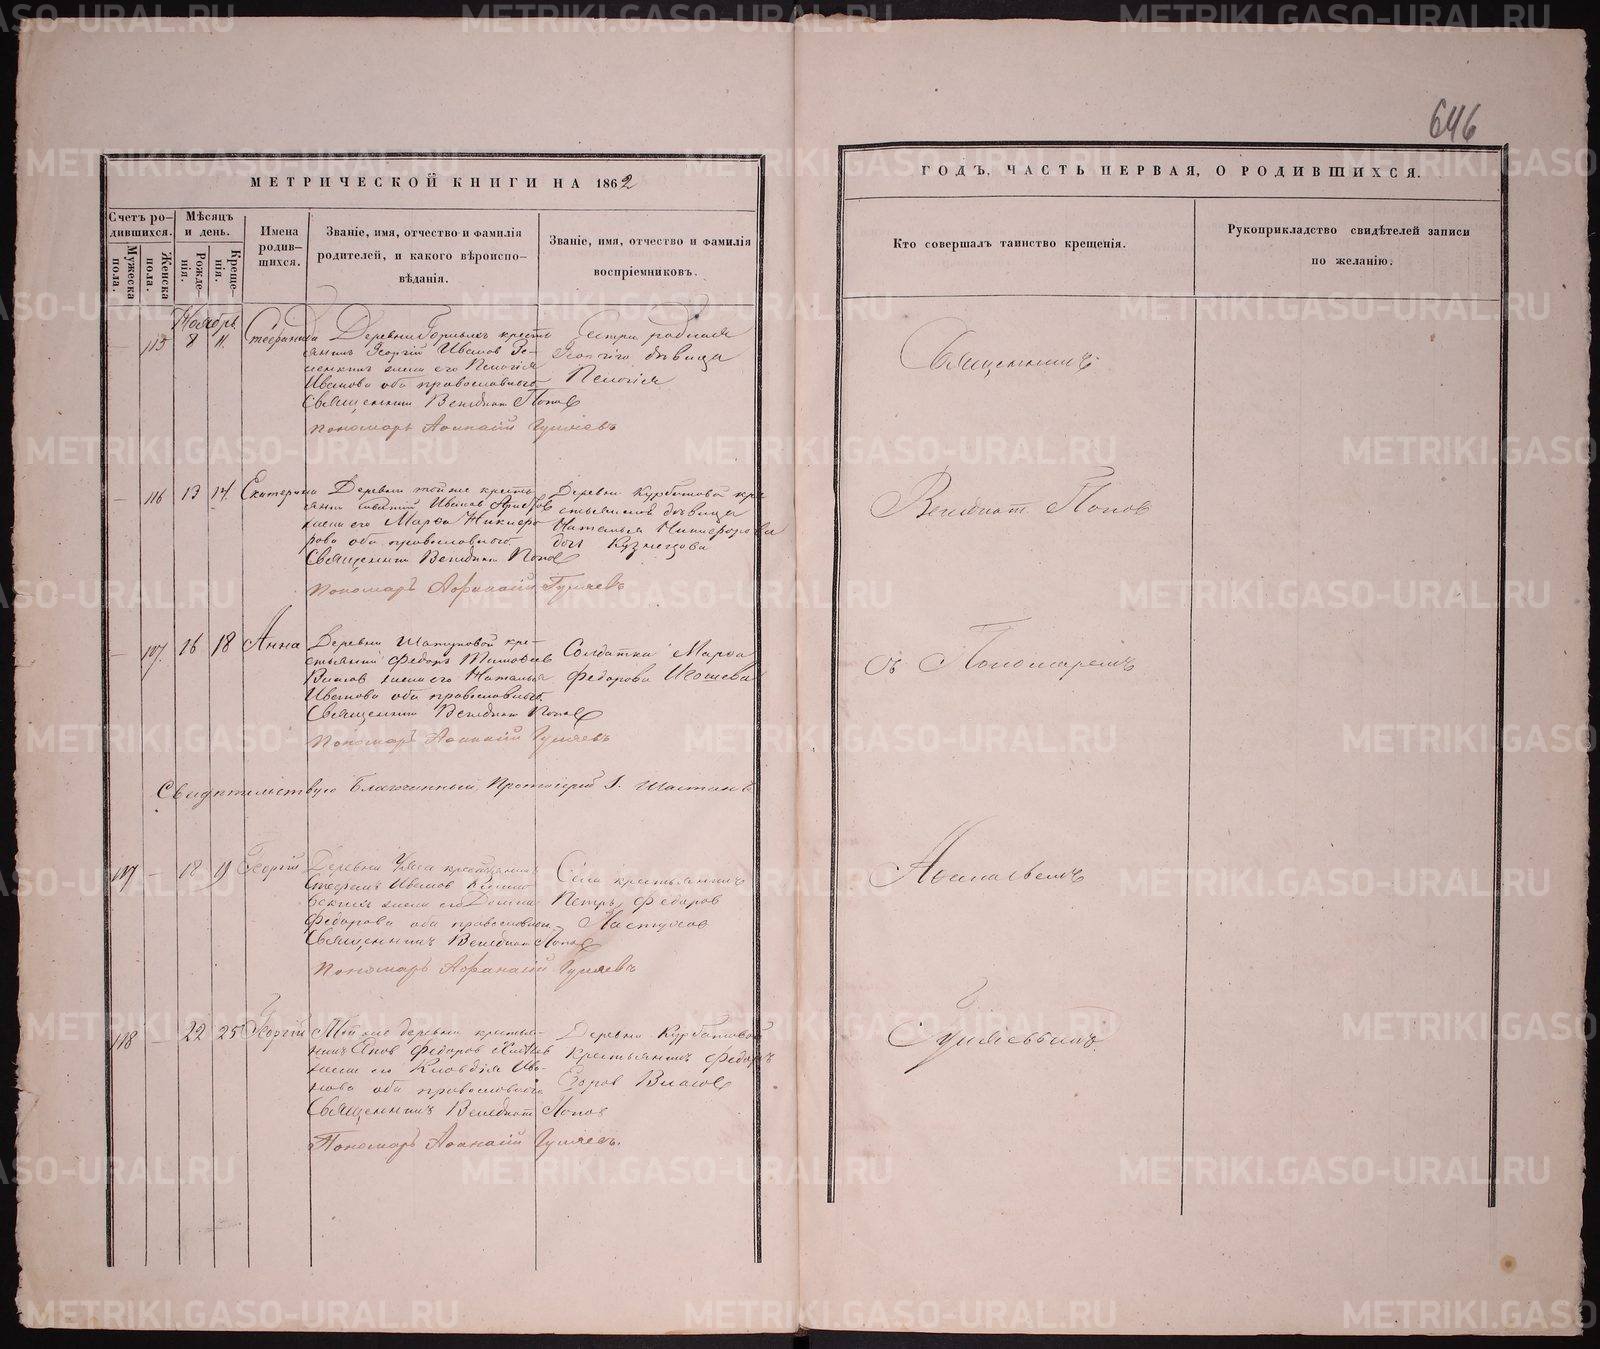 646
МЕТРИЧЕСКОЙ КНИГИ НА 1862
ГОДЪ, ЧАСТЬ ПЕРВАЯ, О РОДИВШИХСЯ.
Счетъ ро-
дившихся.
Мужеска
пола.
Женска
пола.
Мѣсяцъ
и день.
Рожде-
нія.
Креще-
нія.
Имена
родив-
шихся.
Званіе, имя, отчество и фамилія
родителей, и какого вѣроиспо-
вѣданія.
Званіе, имя, отчество и фамилія
воспріемниковъ.
Кто совершалъ таинство крещенія.
Рукоприкладство свидѣтелей записи
по желанію.
Ноябрь
115 8 11. Стефанида
Деревни крестья
янинъ Георгій Иванов
жена его Пелагія
Иванова оба православнаго
Священникъ Венедиктъ Попов
Пономарь Аѳанасій Гуляевъ
Сестра родная
Георгія дѣвица
Пелагія
116 13 14. Екатерина
Деревни той же кресть
Иванов
жена его Марѳа Никифо
рова оба православнаго
Священникъ Венедиктъ Попов
Пономарь Афанасій Гуляевъ
Деревни Курбатовой кре
стьянская дѣвица
Наталья Никифорова
Кузнецова
117. 16 18 Анна
Деревни кре-
стьянинъ Федоръ Тимофеев
Власов жена его Наталья
Иванова оба православнаго
Священникъ Венедиктъ Попов
Пономарь Аѳанасій Гуляевъ
Солдатка Марѳа
Федорова
Свидѣтельствую Благочинный, Протоіерей
117 — 18 19 Георгій
Деревни крестьянинъ
Стефанъ Иванов
жена его Домна
Федорова оба православнаго
Священникъ Венедиктъ Попов
Пономарь Афанасій Гуляевъ
Села крестьянинъ
Петръ Федоров
Пастухов
118 — 22 25 Георгій
Той же деревни крестья-
нинъ Яков Федоров
жена его Клавдія Ива-
нова оба православнаго
Священникъ Венедиктъ Попов
Пономарь Аѳанасій Гуляевъ.
Деревни Курбатовой
крестьянинъ Федоръ
Егоров Власов
Священникъ
Венедиктъ Попов
съ Пономаремъ
Аѳанасьемъ
Гуляевымъ
METRIKI.GASO-URAL.RU